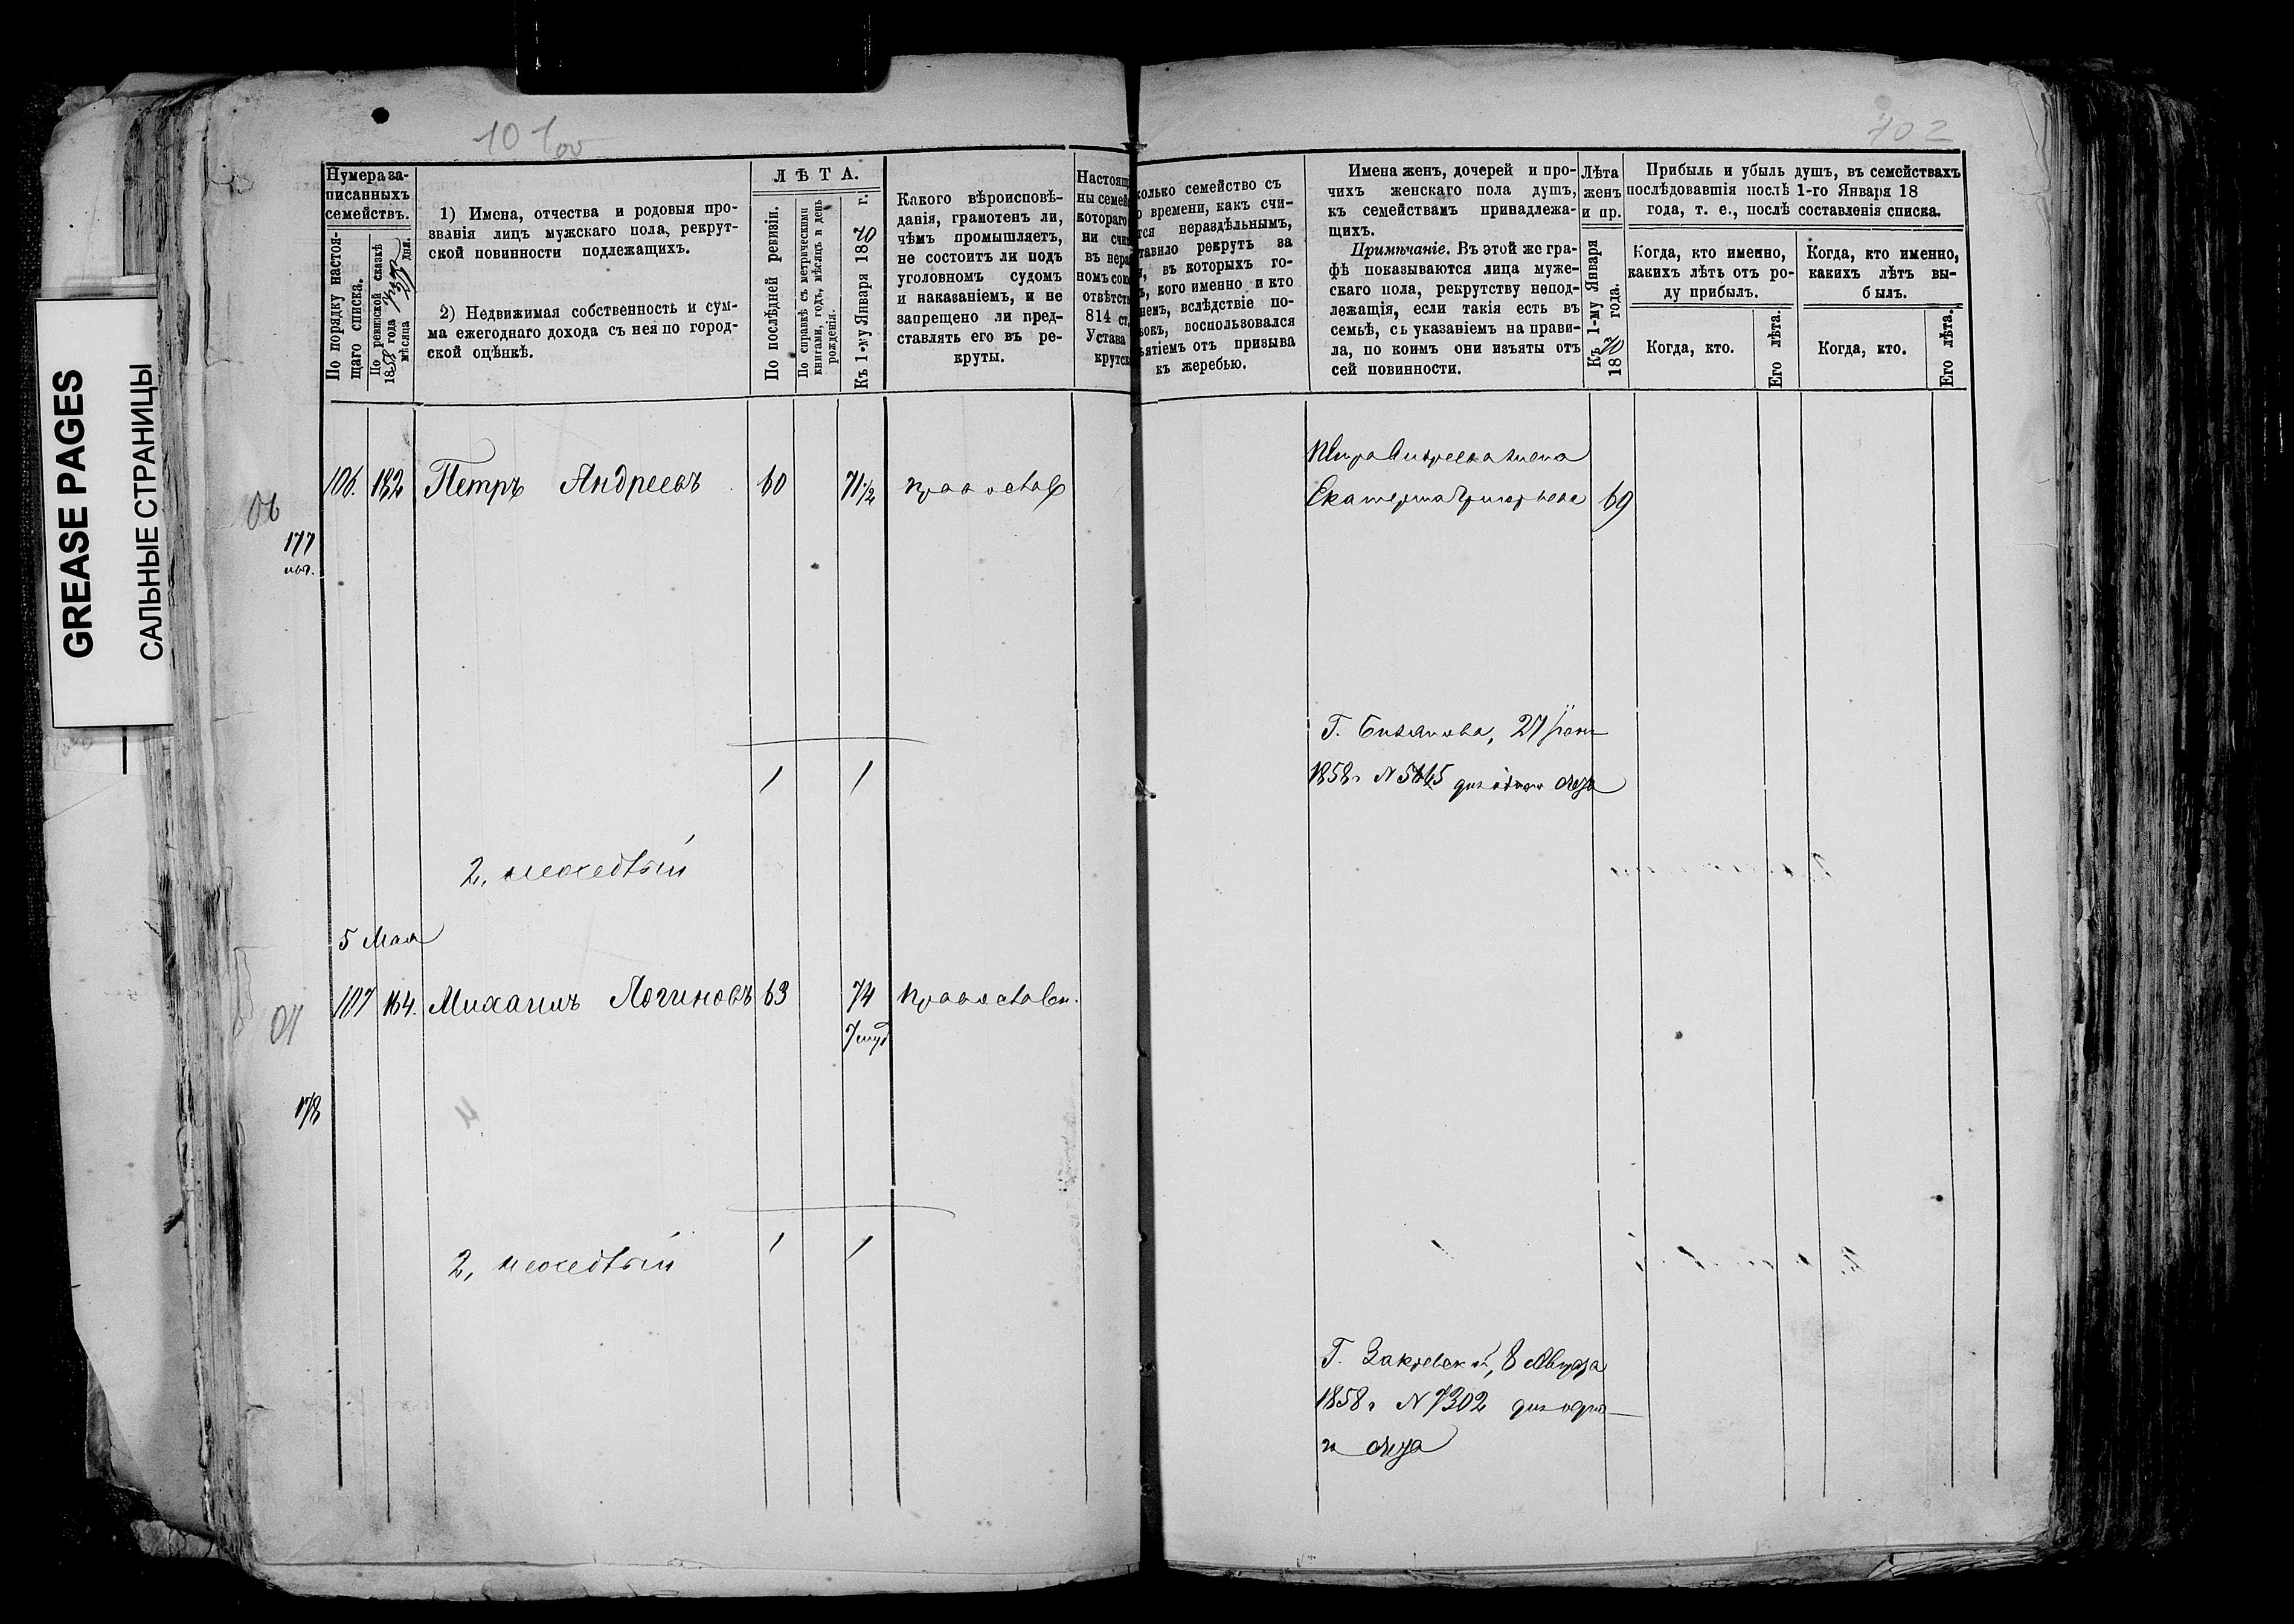 GREASE PAGES
САЛЬНЫЕ СТРАНИЦЫ
101 об
102
Нумера за-
писанныхъ
семействъ.
По порядку настоя-
щаго списка.
По ревизской сказкѣ
18 58 года
мѣсяца дня.
1) Имена, отчества и родовыя про-
званія лицъ мужскаго пола, рекрут-
ской повинности подлежащихъ.
2) Недвижимая собственность и сум-
ма ежегоднаго дохода съ нея по город-
ской оцѣнкѣ.
ЛѢТА.
По послѣдней ревизіи.
По справкѣ съ метрическими
книгами, годъ, мѣсяцъ и день
рожденія.
Къ 1-му Января 1870 г.
Какого вѣроисповѣ-
данія, грамотенъ ли,
чѣмъ промышляетъ,
не состоитъ ли подъ
уголовномъ судомъ
и наказаніемъ, и не
запрещено ли пред-
ставлять его въ ре-
круты.
Настоящ
ны семей
котораго
ни счит
въ нера
номъ сою
отвѣтст
814 ст.
Устава
крутск
колько семейство съ
о времени, какъ счи-
тся нераздѣльнымъ,
тавило рекрутъ за
, въ которыхъ го-
ъ, кого именно и кто
немъ, вслѣдствіе по-
ьокъ, воспользовался
ъятіемъ отъ призыва
къ жеребью.
Имена женъ, дочерей и про-
чихъ женскаго пола душъ,
къ семействамъ принадлежа-
щихъ.
Примѣчаніе. Въ этой же гра-
фѣ показываются лица муже-
скаго пола, рекрутству непод-
лежащія, если такія есть въ
семьѣ, съ указаніемъ на прави-
ла, по коимъ они изъяты отъ
сей повинности.
Лѣта
женъ
и пр.
Къ 1-му Января
1870 года.
Прибыль и убыль душъ, въ семействахъ
послѣдовавшія послѣ 1-го Января 18
года, т. е., послѣ составленія списка.
Когда, кто именно,
какихъ лѣтъ отъ ро-
ду прибылъ.
Когда, кто именно,
какихъ лѣтъ вы-
былъ.
Когда, кто.
Его лѣта.
Когда, кто.
Его лѣта.
106. 182 Петръ Андреевъ 60 71 1/2 православ
Петра Андреева жена
Екатерина Григорьева 69
177
1 1
Г. 27
1858 г N
2,
5 Мая
107 164. Михаилъ Логиновъ 63 74 православн.
178
1 1
2,
Г. Закревскій, 8 Августа
1858 г N 7302